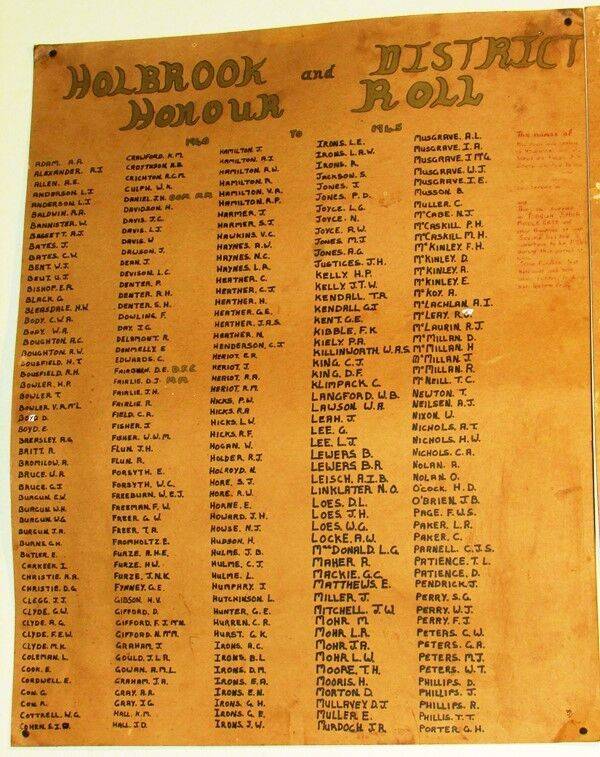 HOLBROOK and DISTRICT
HONOUR ROLL
1940 TO 1945
ADAM. A.A.
ALEXANDER. R.J
ALLEN. A.E.
ANDERSON. L.J
ANDERSON L.J
BALDWIN. R.A
BANNISTER. W.
BASSETT. A.J
BATES. J.
BATES. C.W.
BENT. W.J
BENT. U.J
BISHOP. E.R
BLACK. G
BLEASDALE. H.W
BODY. C.W.R.
BODY. W.A
BOUGHTON. A.C.
BOUGHTON. R.W.
BOUSFIELD. H.T
BOUSFIELD. R.H
BOWLER. H.P.
BOWLER T.
BOWLER V.R.M'L
BOYD D.
BOYD. E.
BREASLEY. A.G
BRITT. R.
BROMILOW. A.
BRUCE. W.A
BRUCE. G.J
BURGUN. E.W
BURGUN. W.H
BURGUN. W.G
BURGUN. J.A
BURNS. G.H.
BUTLER. E.
CARKEEK I.
CHRISTIE. A.A.
CHRISTIE. D.G
CLEGG. J.J
CLYDE. G.W.
CLYDE. A.G
CLYDE. F.E.W.
CLYDE. M.K.
COLEMAN. L.
COOK. E.
CORDWELL. E.
COX. G.
COX. R.
COTTRELL. W.G.
COHEN. S.I.
CRAWFORD. K.M.
CROYTHORN. R.B.
CRICHTON. R.C.M
CULPH. W.K.
DANIEL. J.N.
DAVIDSON. H.
DAVIS. J.C.
DAVIS. L.J
DAVIS. W
DAWSON. J.
DEAN. J.
DEVISON. L.C.
DENTER. P.
DENTER. R.H.
DENTER. S.H.
DOWLING. F.
DAY. J.G.
DELAMONT. R.
DONMELLY. E
EDWARDS. C.
FAIRBURN. D.E. D.F.C
FAIRLIE. D.J. M.M.
FAIRLIE. J.H.
FAIRLIE. R
FIELD. C.R.
FISHER. J
FISHER. W.W.M.
FLUN. J.H.
FLUN. R.
FORSYTH. E.
FORSYTH. W.C.
FREEBURN. W.E.J.
FREEMAN. F.W
FREER. G.W.
FREER. T.R.
FROMHOLTZ E.
FURZE. A.H.E.
FURZE. H.W.
FURZE. J.N.K
FYNNEY. G.E.
GIBSON. H.V.
GIFFORD. D.
GIFFORD. F.J
GIFFORD. N
GRAHAM. J
GOULD. J.L.R.
GOWAN. A.M.L.
GRAHAM. J.A.
GRAY. A.R.
GRAY. J.G
HALL. K.M.
HALL. J.D.
HAMILTON. J
HAMILTON. A.J.
HAMILTON. R.W.
HAMILTON. R
HAMILTON. V.A.
HAMILTON. R.P.
HARMER. J
HARMER. S.J
HAWKINS. V.C.
HAYNES. A.W.
HAYNES. N.C.
HAYNES. L.A.
HEATHER. C.
HEATHER. C.J
HEATHER. H.
HEATHER. G.E.
HEATHER. J.A.S.
HEATHER. N
HENDERSON. C.J
HERIOT. E.R
HERIOT. J.
HERIOT. R.A.
HERIOT. R.M.
HICKS. P.W.
HICKS. R.A
HICKS. L.W.
HICKS. R.F.
HOGAN. W.
HOLDER R.J
HOLROYD. N
HORE. S.J.
HORE. R.W.
HORNE. E.
HOWARD. J.H
HOUSE. N.J
HUDSON. H.
HULME. J.B
HULME. C.J
HULME. L.
HUMPHRY. J
HUTCHINSON. L
HUNTER. G.E.
HURREN. C.R.
HURST. G.K
IRONS. A.C.
IRONS. B.L
IRONS. D.M
IRONS. E.A.
IRONS. E.N
IRONS. G.H
IRONS. G.E.
IRONS. J.W.
IRONS. L.E.
IRONS. L.A.W.
IRONS. R.
JACKSON. S
JONES. J
JONES. P.D.
JOYCE. L.G
JOYCE. N.
JOYCE. R.W
JONES. M.J
JONES. A.G
JUSTICES. J.H.
KELLY. H.P.
KELLY. J.T.W.
KENDALL. T.R
KENDALL. G.J
KENT. G.E.
KIBBLE. F.K
KIELY. P.A.
KILLINWORTH. W.A.S
KING. C.J
KING. D.F.
KLIMPACK C
LANGFORD. W.B.
LAWSON. W.A.
LEAH. J
LEE. G.
LEE. L.J
LEWERS B.
LEWERS B.R
LEISCH. A.I.B.
LINKLATER N.O.
LOES. D.L.
LOES. J.H.
LOES. W.G.
LOCKE. A.W.
MacDONALD. L.G
MAHER. R
MACKIE. G.C.
MATTHEWS. E.
MILLER. J.
MITCHELL. J.W
MOHR. M
MOHR L.R.
MOHR. J.A.
MOHR L.W.
MOORE. T.H.
MOORIS. H.
MORTON. D
MULLAVEY D.J
MULLER E.
MURDOCH. J.R
MUSGRAVE. A.L.
MUSGRAVE. I.A.
MUSGRAVE. J McG.
MUSGRAVE. W.J
MUSGRAVE. I.E.
MUSSON. B.
MULLER. C.
McCABE. N.J
McCASKILL P.H.
McCASKILL M.H.
McKINLEY. F.H.
McKINLEY. D.
McKINLEY. A.
McKINLEY. E.
McKOY. A.
McLACHLAN. A.I.
McLEAY. R.G.
McLAURIN. R.J
McMILLAN. D.
McMILLAN. H
McMILLAN. J
McMILLAN. R.
McNEILL. T.C.
NEWTON. T.
NEILSEN. A.J
NIXON. W.
NICHOLS. A.T
NICHOLS. H.W.
NICHOLS. C.A.
NOLAN. A.
NOLAN. O.
O'COCK. H.D.
O'BRIEN. J.B.
PAGE. F.W.S.
PAKER. L.R.
PAKER. C.
PARNELL. C.J.S.
PATIENCE. T.L.
PATIENCE. D.
PENDRICK. J.
PERRY. S.G.
PERRY. W.J
PERRY. F.J
PETERS. C.W.
PETERS. G.A.
PETERS. M.J.
PETERS. W.T.
PHILLIPS. D.
PHILLIPS. J.
PHILLIPS. R.
PHILLIS. T.T.
PORTER G.H.
The names of